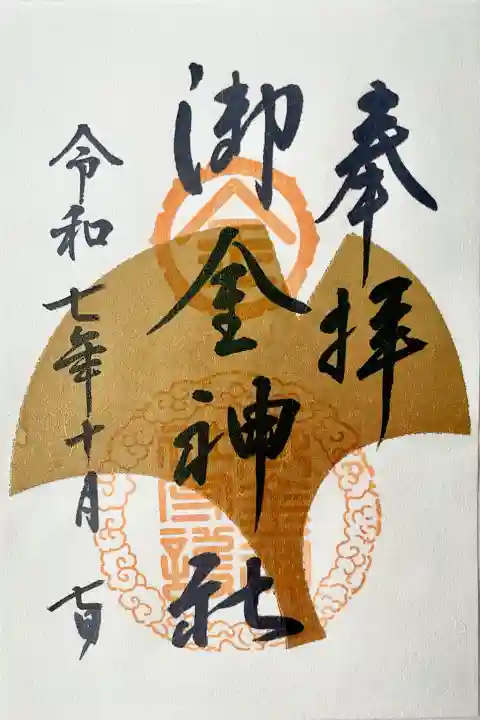 奉拝
御金神社
令和七年十月七日